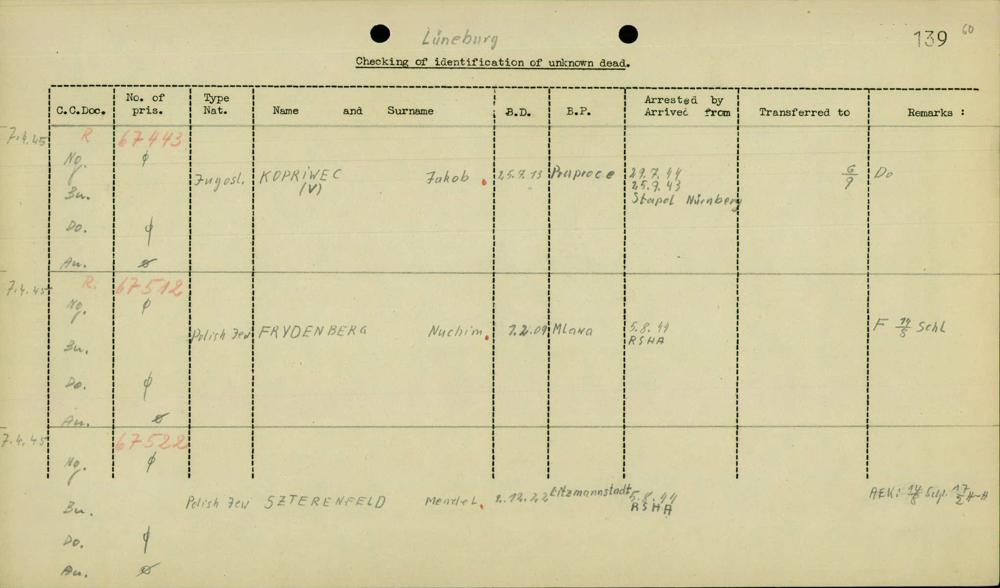 Lüneburg
139 60
Checking of identification of unknown dead.
C.C.Doc. No. of pris. Type Nat. Name and Surname B.D. B.P. Arrested by Arrived from Transferred to Remarks :
7.4.45 R 67443
Ng. ϕ
Jugosl. KOPRIWEC Jakob. 25.7.13 Praproce 29.7.44 6/9 Do
(V) 25.9.43
Bu. Stapol Nürnberg
Do. ϕ
Au. ϕ
7.4.45 R. 67512
Ng. ϕ
Polish Jew FRYDENBERG Nuchim. 7.2.09 Mlawa 5.8.44 F 14/8 Schl
Bu. RSHA
Do. ϕ
Au. ϕ
7.4.45 67522
Ng. ϕ
Polish Jew SZTERENFELD Mendel. 2.12.22 Litzmannstadt 5.8.44 AEK: 14/8 17/2 H-H
Bu. RSHA
Do. ϕ
Au. ϕ